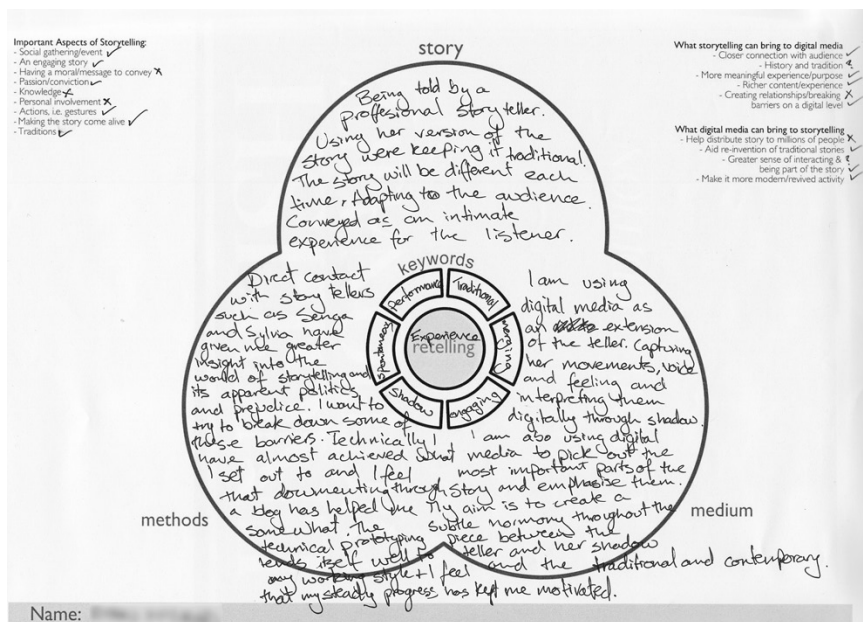 Important Aspects of Storytelling:
- Social gathering/event ✓
- An engaging story ✓
- Having a moral/message to convey x
- Passion/conviction ✓
- Knowledge x
- Personal involvement x
- Actions, i.e. gestures ✓
- Making the story come alive ✓
- Traditions ✓
What storytelling can bring to digital media
- Closer connection with audience ✓
- History and tradition ?
- More meaningful experience/purpose ✓
- Richer content/experience ✓
- Creating relationships/breaking x
barriers on a digital level ✓
What digital media can bring to storytelling
- Help distribute story to millions of people x
- Aid re-invention of traditional stories ✓
- Greater sense of interacting & ?
being part of the story ✓
- Make it more modern/revived activity ✓
story
Being told by a
proffesional storyteller.
Using her version of the
story were keeping it traditional.
The story will be different each
time. Adapting to the audience.
Conveyed as an intimate
experience for the listener.
keywords
Performance
Traditional
merging
engaging
shadow
spontaneous
Experience
retelling
Direct contact
with story tellers
such as Senga
and Sylvia have
given me greater
insight into the
world of storytelling and
its apparent politics
and prejudice. I want to
try to break down some of
these barriers. Technically I
have almost achieved what
I set out to and I feel
that documenting through
a blog has helped me
somewhat. The
technical prototyping
lends itself well to
my working style + I feel
that my steady progress has kept me motivated.
methods
I am using
digital media as
an extension
of the teller. Capturing
her movements, voice
and feeling and
interpreting them
digitally through shadow.
I am also using digital
media to pick out the
most important parts of the
story and emphasise them.
My aim is to create a
subtle harmony throughout the
piece between the
teller and her shadow
and the traditional and contemporary.
medium
Name: